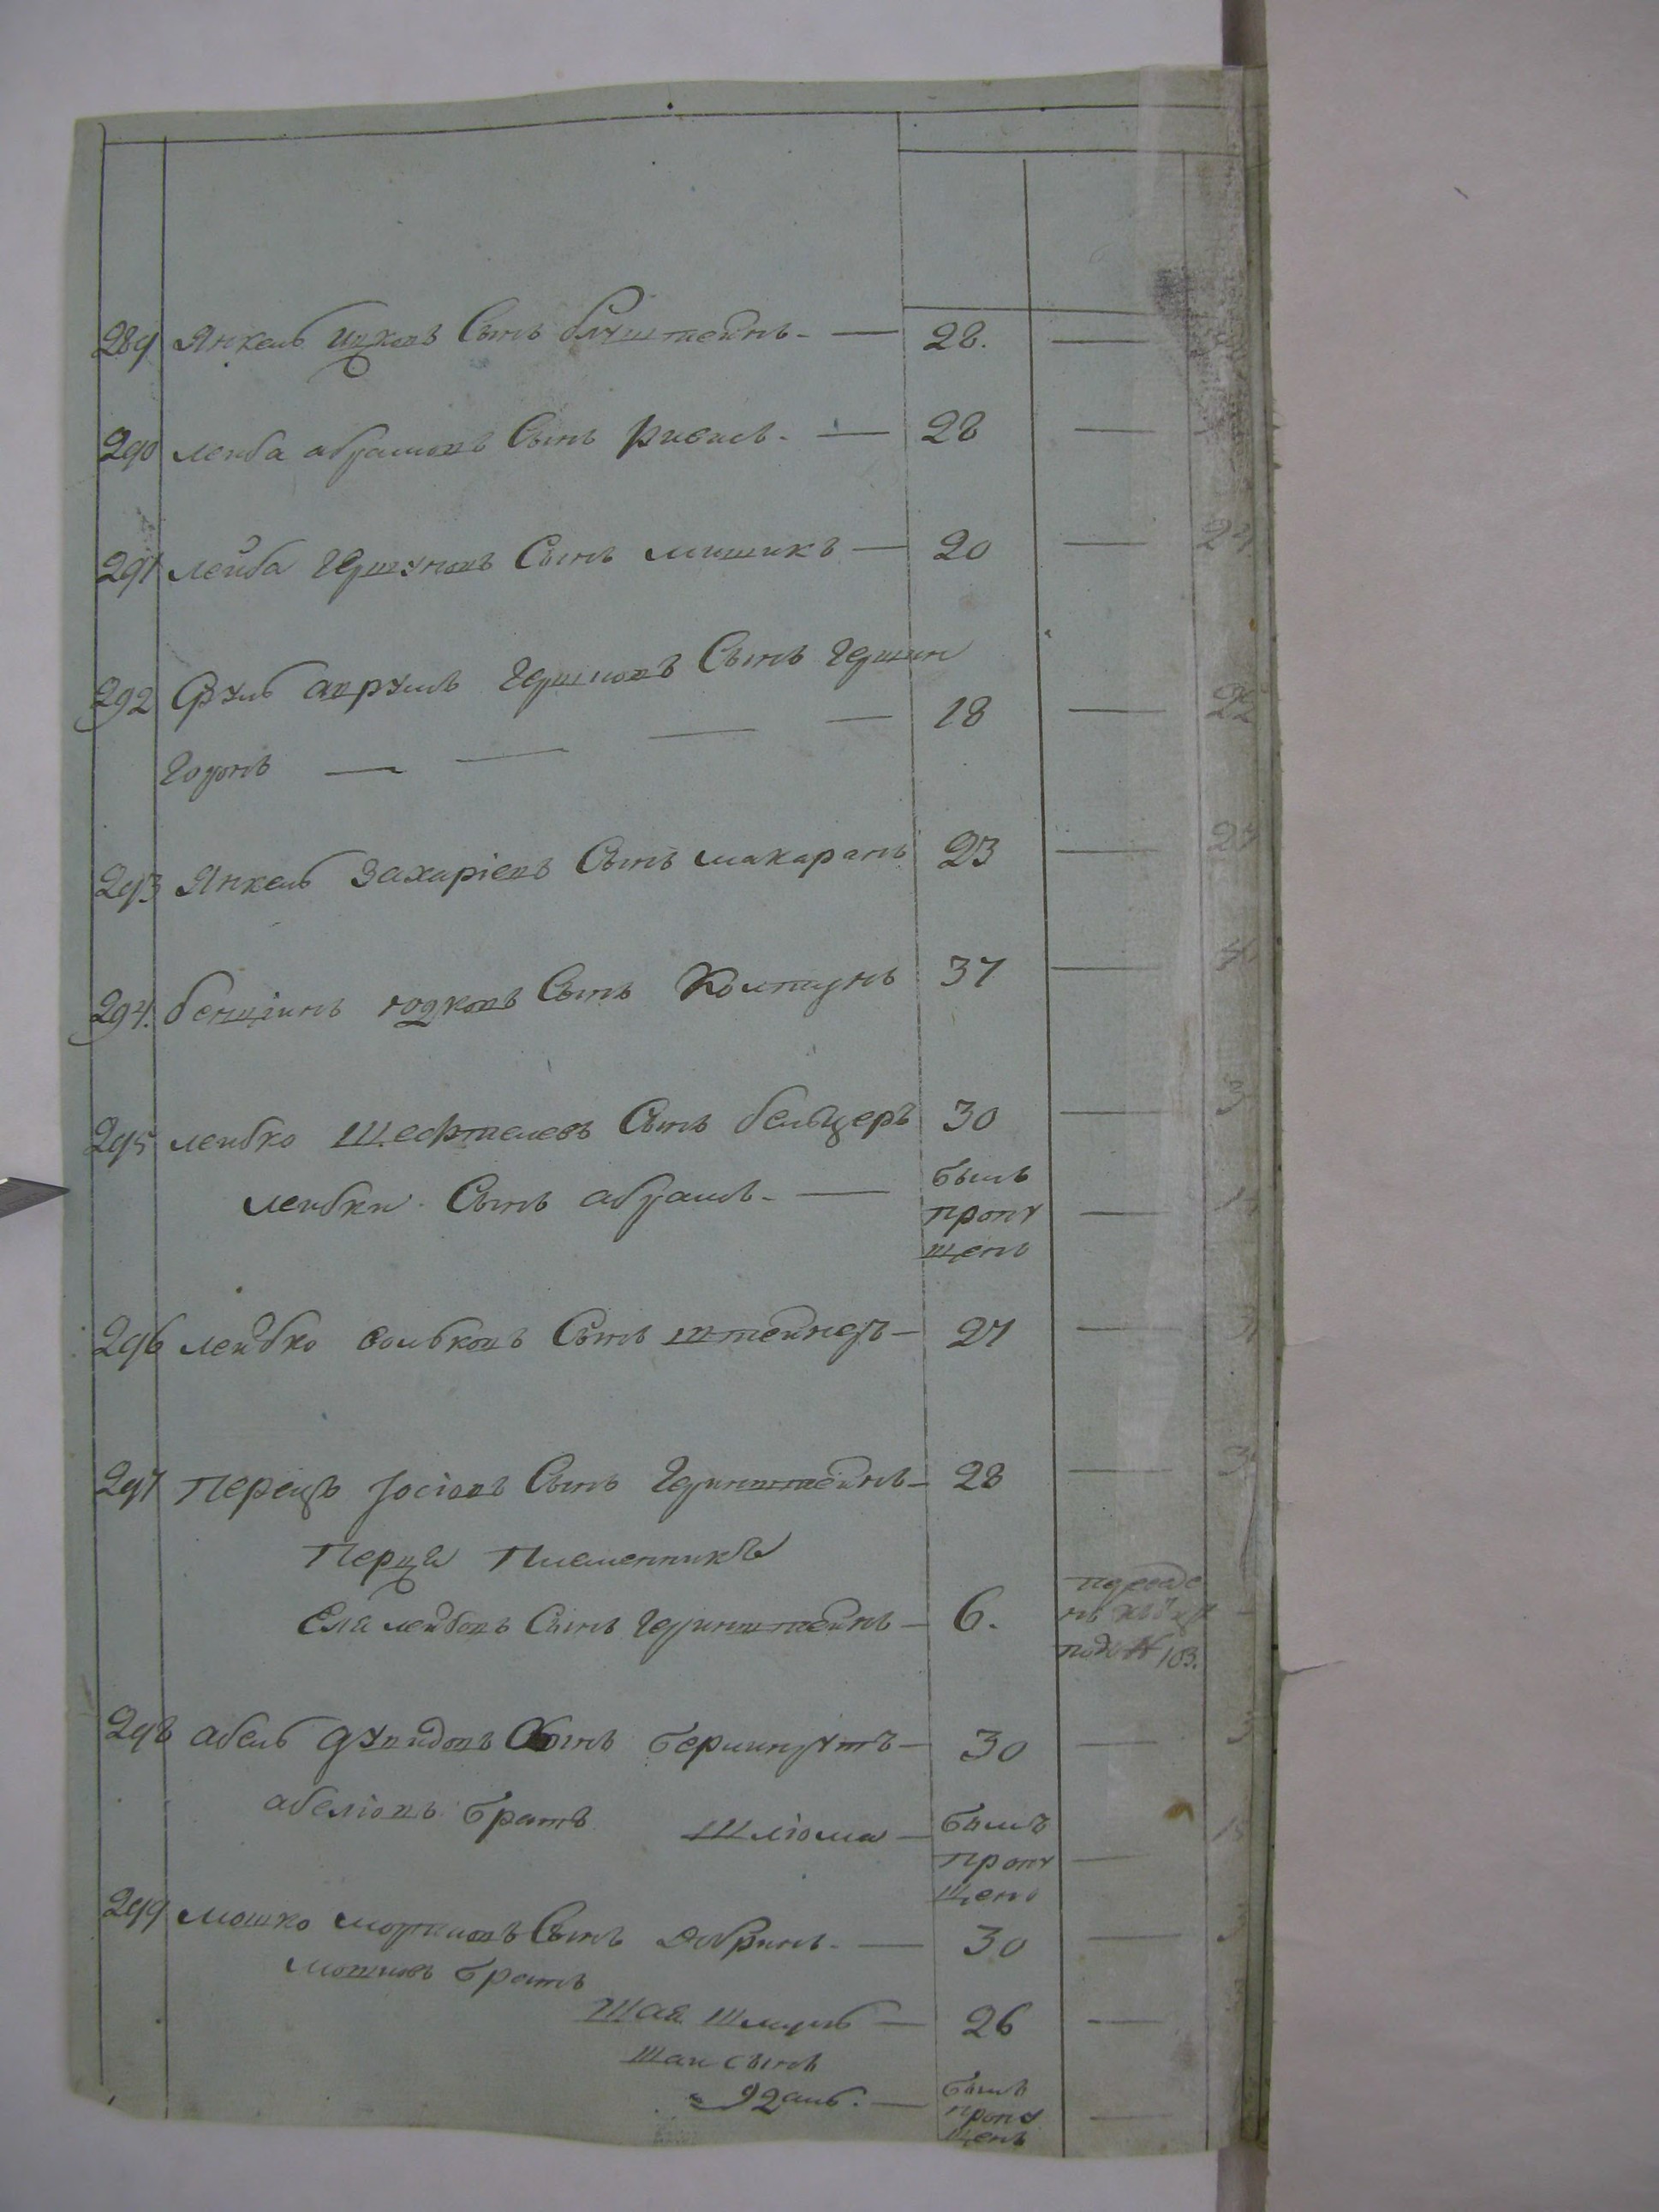 289 Янкель Ицковъ Сынъ блуштейнъ — 28. —
290 лейба абрамовъ Сынъ — 28 —
291 лейба Гершуновъ Сынъ мишикъ — 20 —
292 Сруль аврумъ Гершковъ Сынъ Гершин
Горонъ — — — — 18 —
293 Янкель Захаріевъ Сынъ макаранъ 23 —
294. бенціинъ Юдковъ Сынъ Колтунъ 37 —
295 лейбко Шефтелевъ Сынъ бельцеръ 30 —
лейбки Сынъ абрамъ — былъ
пропу —
щенъ
296 лейбко волковъ Сынъ штейнеръ — 27 —
297 Перецъ Іосіовъ Сынъ Геринштейнъ — 28 —
Перца Племенникъ
Еля лейбовъ Сынъ Геринштейнъ — 6.
подъ № 103.
298 абель Дувидовъ Сынъ беримгутъ — 30 —
абеліовъ братъ Шліома — былъ
пропу —
щенъ
299 мошко мортковъ Сынъ добринъ — 30 —
мошковъ братъ
Шая Шмуль — 26 —
Шаи сынъ
Идаль. — былъ
пропу —
щенъ